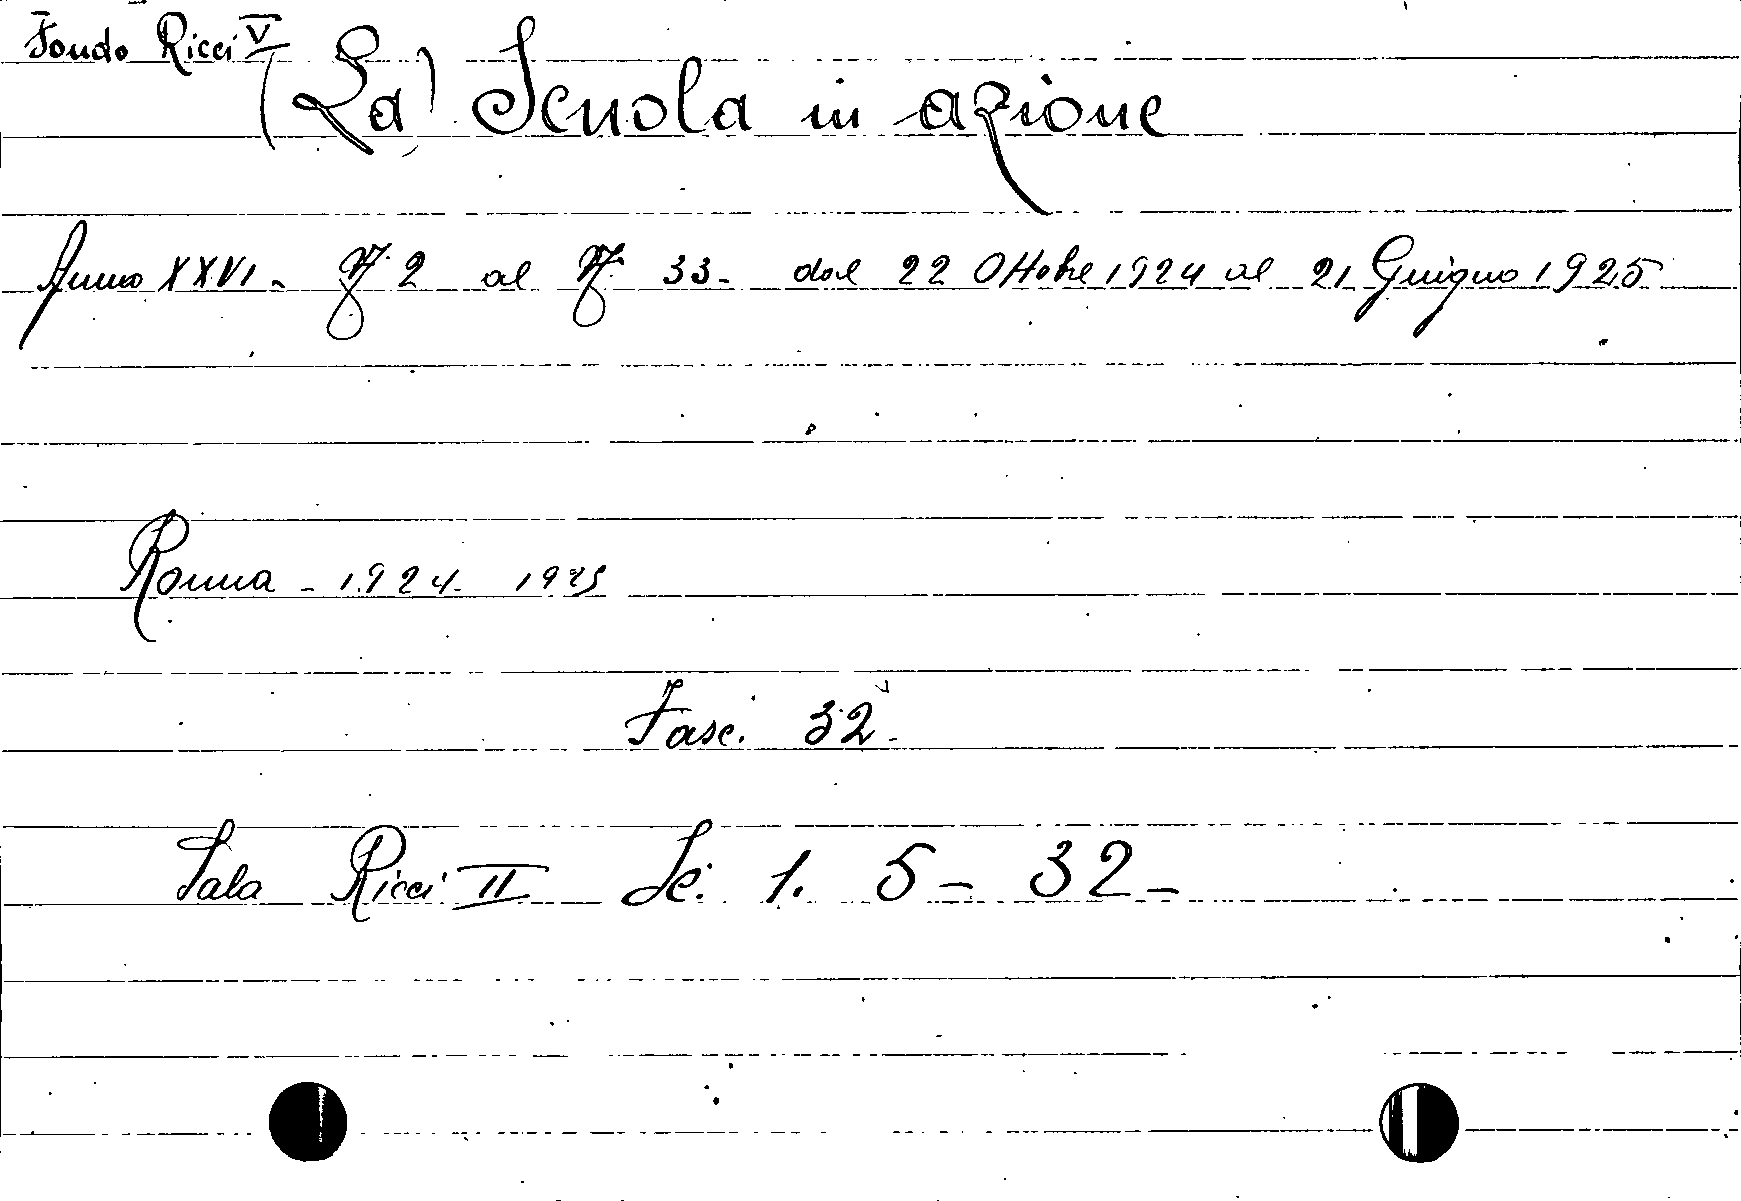 Fondo Ricci V
(La) Scuola in azione
Anno XXVI - N. 2 al N. 33 - dal 22 Ottobre 1924 al 21 Giugno 1925
Roma - 1924 - 1925
Fasc. 32 -
Sala Ricci II Sc. 1. 5 - 32 -